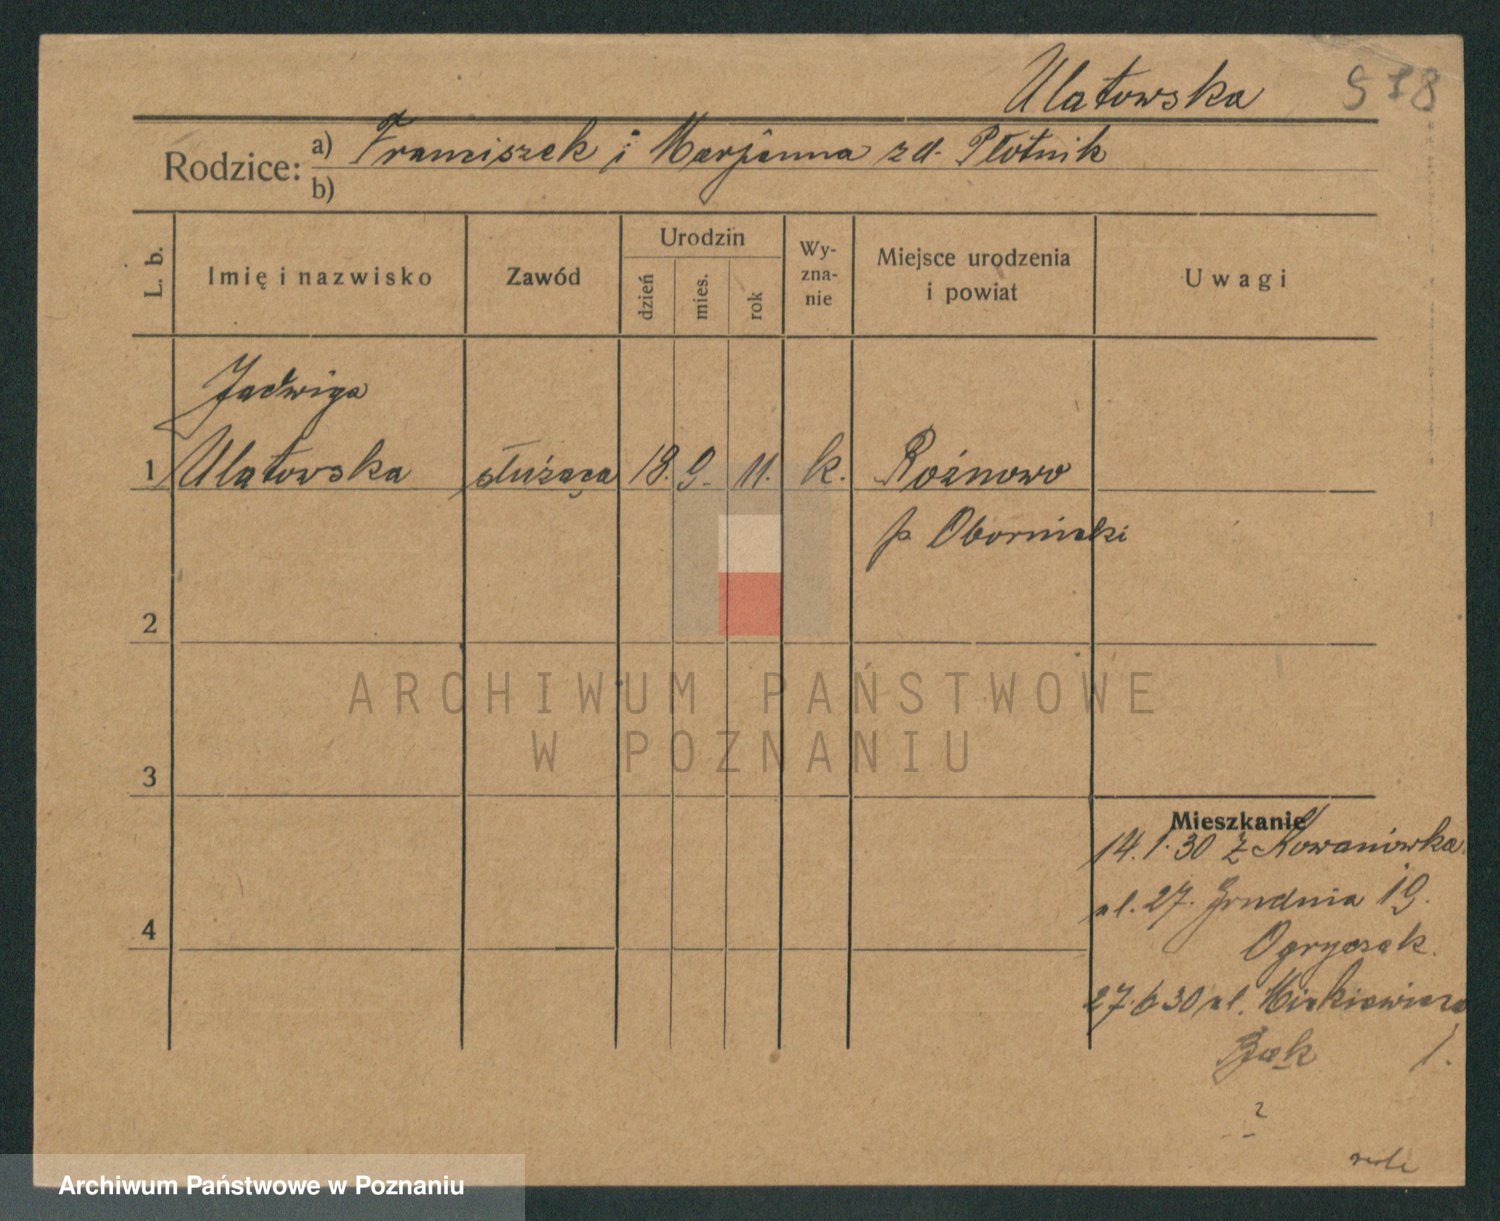 Ulatowska 978
Rodzice: a) Franciszek i Marjanna zd. Płótnik
b)
L. b. Imię i nazwisko Zawód Urodzin dzień mies. rok Wyznanie Miejsce urodzenia i powiat Uwagi
Jadwiga
1 Ulatowska służąca 18. 9. 11. k. Rożnowo
p. Obornicki
2
ARCHIWUM PAŃSTWOWE
W POZNANIU
3
Mieszkanie
14.1.30 z Kowanówka
ul. 27. Grudnia 19.
27.6.30 ul. Mickiewicza
1.
4
?
Archiwum Państwowe w Poznaniu